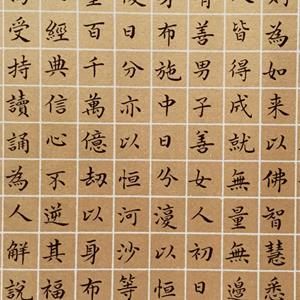 則為如來以佛智慧悉
人皆得成就無量無邊
有善男子善女人初日
身布施中日分復以恒
後日分亦以恒河沙等
量百千萬億劫以身布
經典信心不逆其福
受持讀誦為人解說